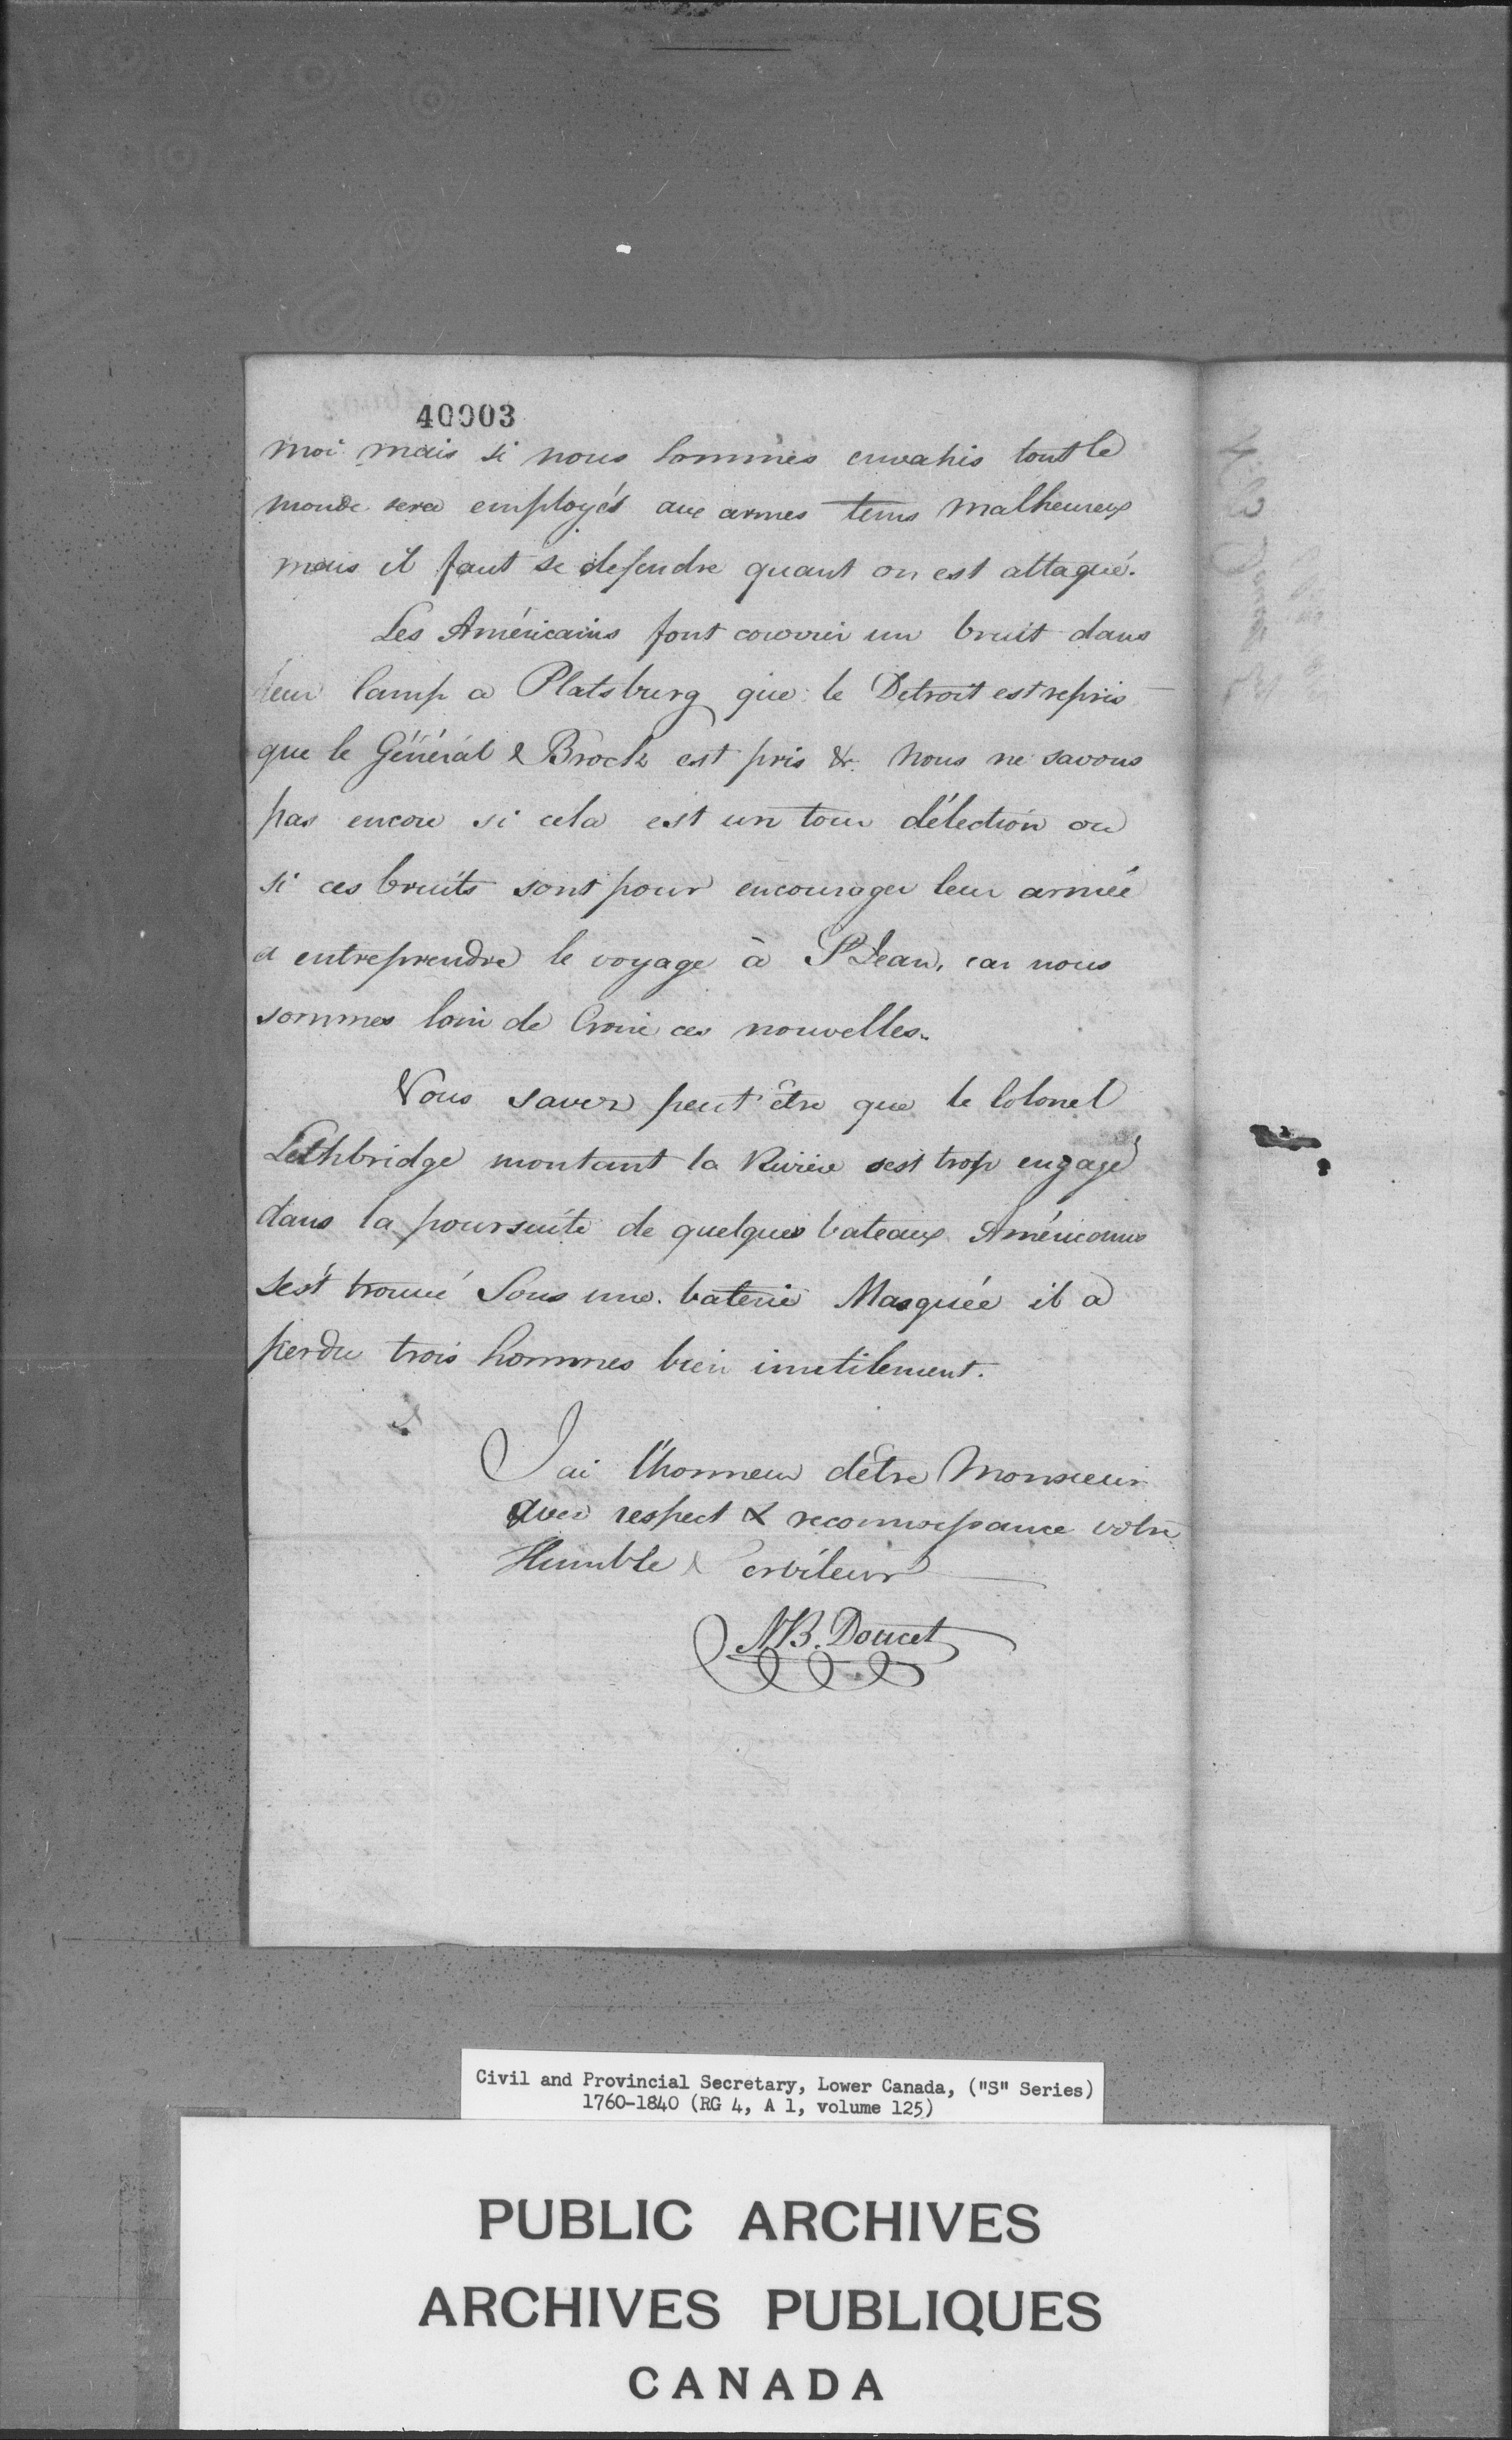 40003
moi mais si nous sommes envahis tout le
monde sera employés aux armes tems malheureux
mais il faut se defendre quant on est attaqué.
Les Américains font couvrir un bruit dans
leur Camp a Platsburg que le Detroit est repris
que le Général Brock est pris &c. nous ne savons
pas encore si cela est un tour d'élection ou
si ces bruits sont pour encourager leur armée
a entreprendre le voyage à St Jean, car nous
sommes loin de Croire ces nouvelles.
Vous savez peut être que le Colonel
Lethbridge montant la Riviere s'est trop engagé
dans la poursuite de quelques bateaux Américains
s'est trouvé Sous une baterie Masquée il a
perdu trois hommes bien inutilement.
J'ai l'honneur d'être Monsieur
avec respect & reconnoissance votre
Humble Serviteur
N.B. Doucet
Civil and Provincial Secretary, Lower Canada, ("S" Series)
1760-1840 (RG 4, A 1, volume 125)
PUBLIC ARCHIVES
ARCHIVES PUBLIQUES
CANADA